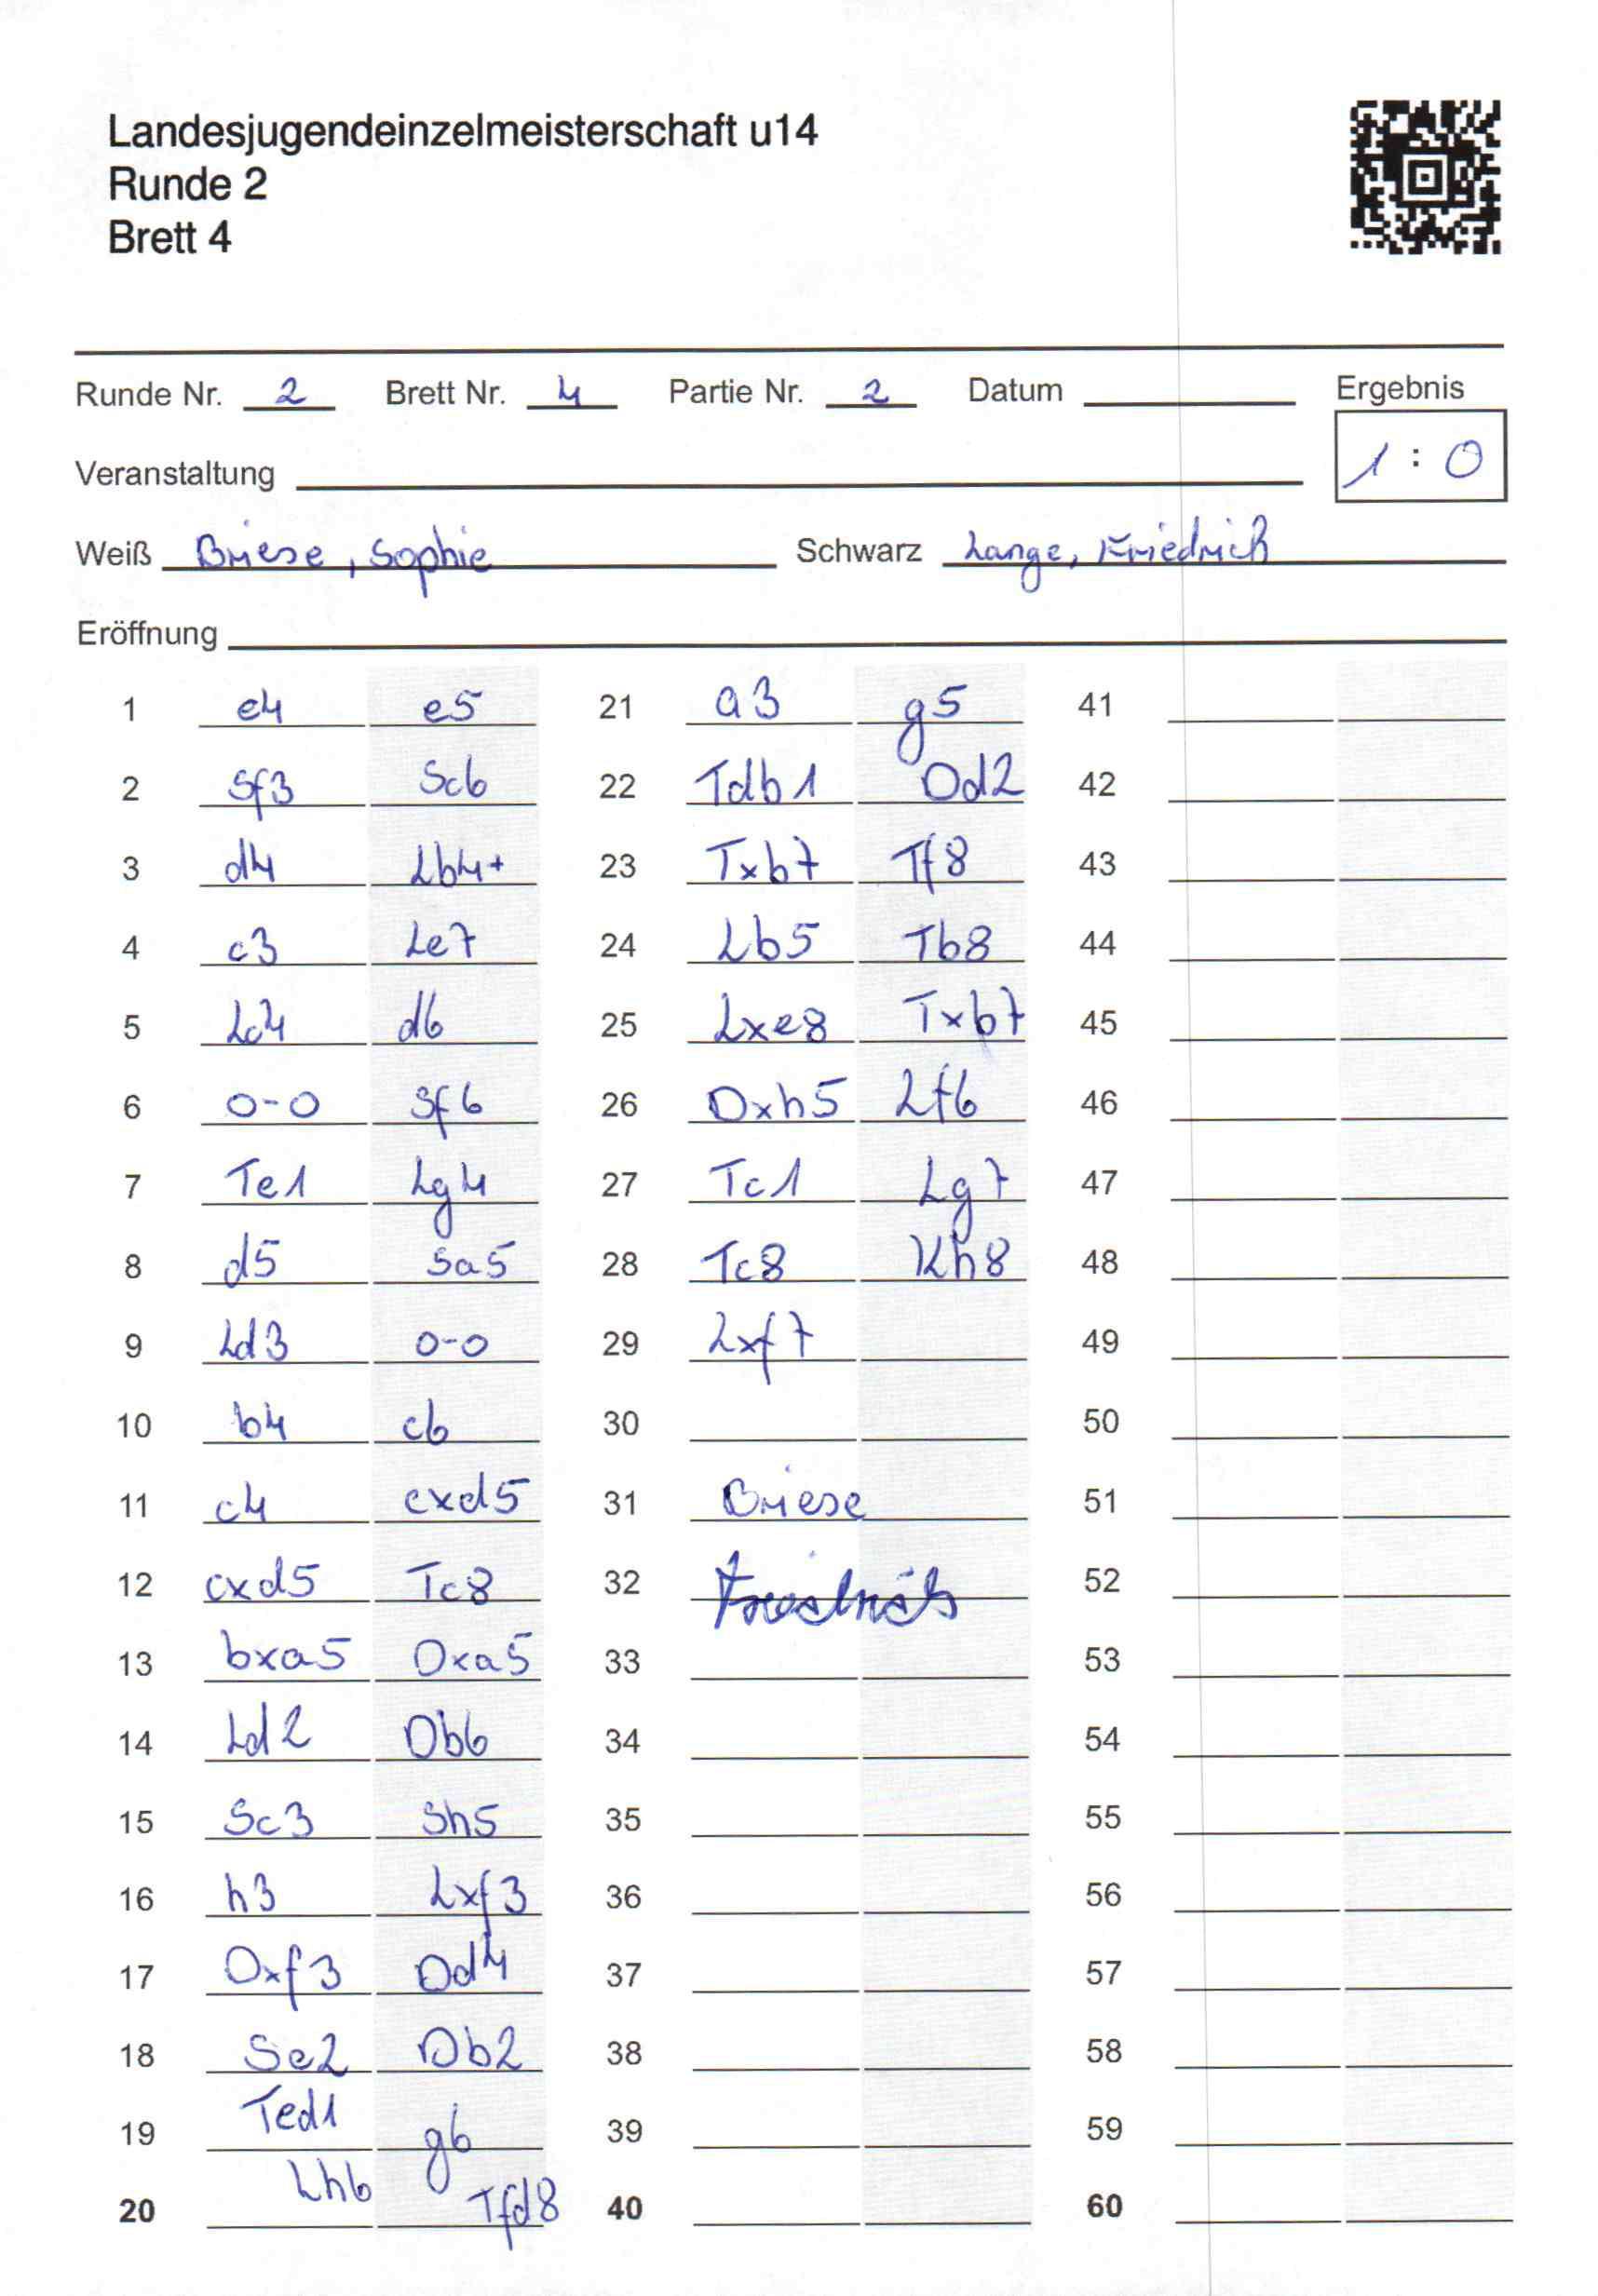 Landesjugendeinzelmeisterschaft u14
Runde 2
Brett 4
Runde Nr. 2 Brett Nr. 4 Partie Nr. 2 Datum Ergebnis
1 : 0
Veranstaltung
Weiß Briese, Sophie Schwarz Lange, Friedrich
Eröffnung
1 e4 e5 21 a3 g5 41
2 Sf3 Sc6 22 Tdb1 Dd2 42
3 d4 Lb4+ 23 Txb7 Tf8 43
4 c3 Le7 24 Lb5 Tb8 44
5 Lc4 d6 25 Lxe8 Txb7 45
6 0-0 Sf6 26 Dxh5 Lf6 46
7 Te1 Lg4 27 Tc1 Lg7 47
8 d5 Sa5 28 Tc8 Kh8 48
9 Ld3 0-0 29 Lxf7 49
10 b4 c6 30 50
11 c4 cxd5 31 Briese 51
12 cxd5 Tc8 32 Friedrich 52
13 bxa5 Dxa5 33 53
14 Ld2 Db6 34 54
15 Sc3 Sh5 35 55
16 h3 Lxf3 36 56
17 Dxf3 Dd4 37 57
18 Se2 Db2 38 58
19 Ted1 g6 39 59
20 Lh6 Tfd8 40 60